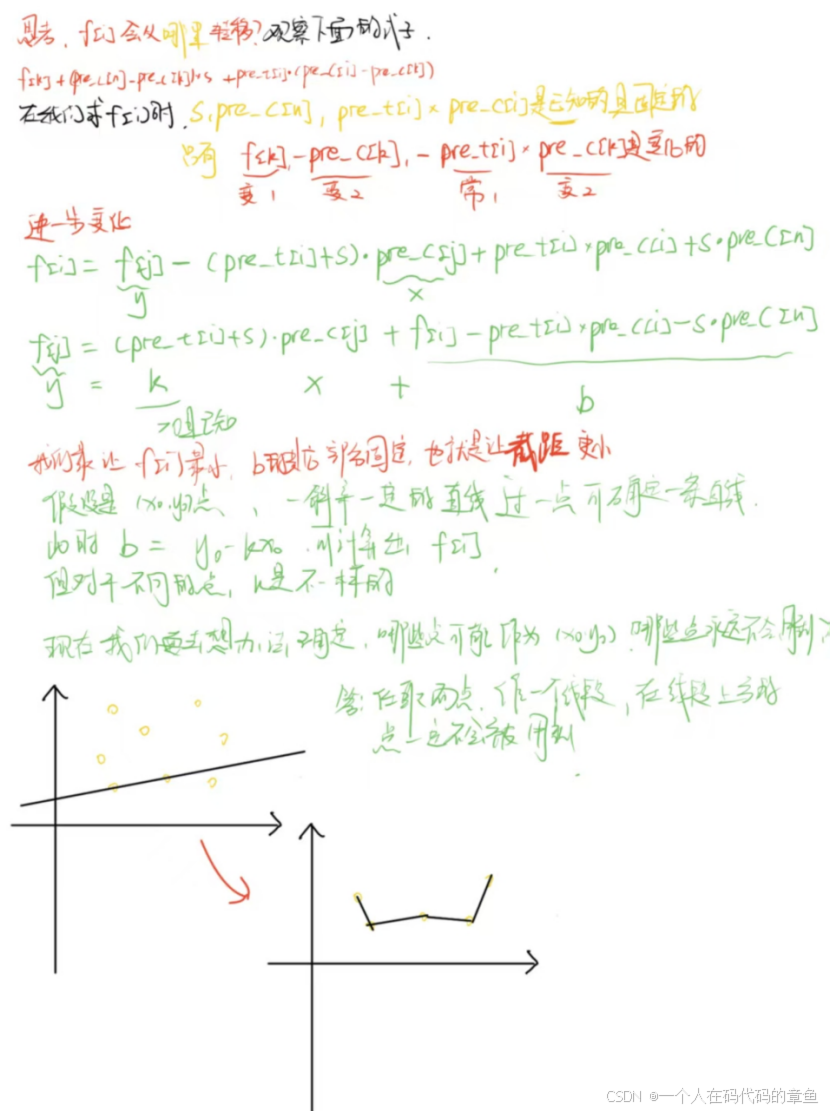 思考,f[i]会从哪里转移?观察下面的式子.
f[k]+(pre_c[n]-pre_c[k])·s +pre_t[i]·(pre_c[i]-pre_c[k])
在我们求f[i]时, S·pre_c[n], pre_t[i]×pre_c[i]是已知的且固定的
只有 f[k],-pre_c[k],-pre_t[i]×pre_c[k]是变化的
变1 变2 常1 变2
进一步变化
f[i]= f[j] - (pre_t[i]+S)·pre_c[j]+pre_t[i]×pre_c[i]+S·pre_c[n]
y x
f[j]=(pre_t[i]+S)·pre_c[j] + f[i]-pre_t[i]×pre_c[i]-S·pre_c[n]
y = k x + b
>0且已知
我们要让 f[i]最小, b 部分固定,也就是让截距更小
假设是(x0,y0)点,一斜率一定的直线过一点可确定一条直线.
此时 b = y0-kx0 可计算出 f[i]
但对于不同的点, 是不一样的
现在我们要去想办法确定,哪些点可能作为(x0,y0),哪些点永远不会用到
答:任取两点,作一个线段,在线段上方的
点一定不会被用到
CSDN @一个人在码代码的章鱼